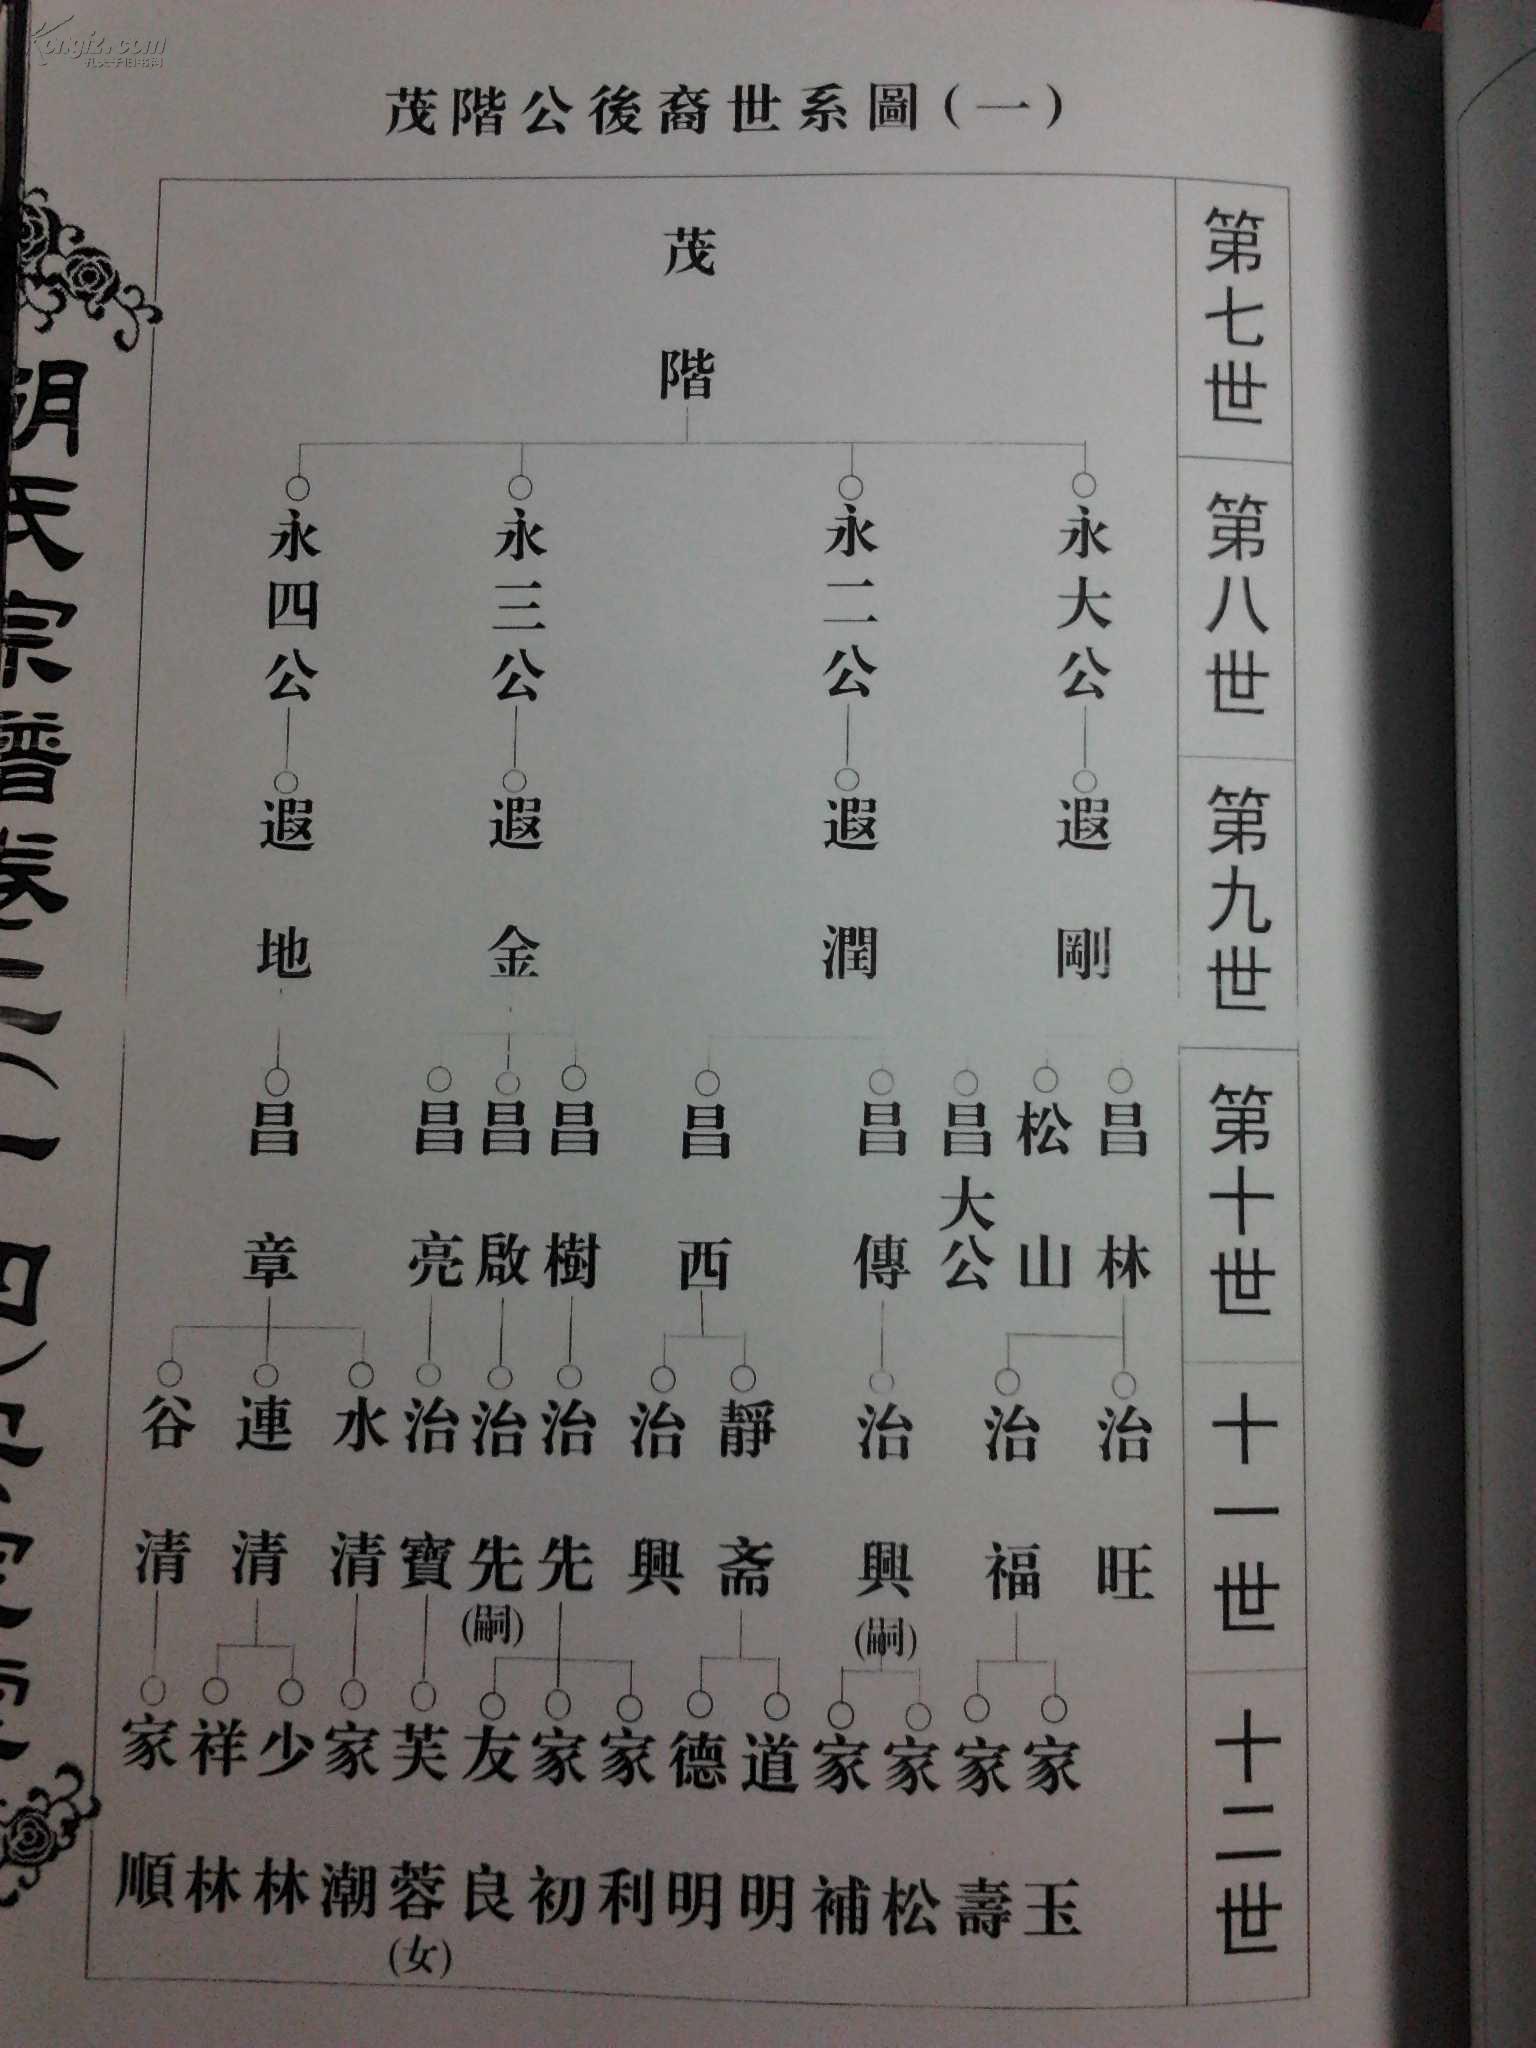 茂階公後裔世系圖(一)
第七世
茂階
第八世
永大公
永二公
永三公
永四公
第九世
遐剛
遐潤
遐金
遐地
第十世
昌林
松山
昌大公
昌傳
昌西
昌樹
昌啟
昌亮
昌章
十一世
治旺
治福
治興(嗣)
靜斋
治興
治先
治先(嗣)
治寶
水清
連清
谷清
十二世
家玉
家壽
家松
家補
道明
德明
家利
家初
友良
芙蓉(女)
家潮
少林
祥林
家順
胡氏宗譜卷
孔夫子旧书网